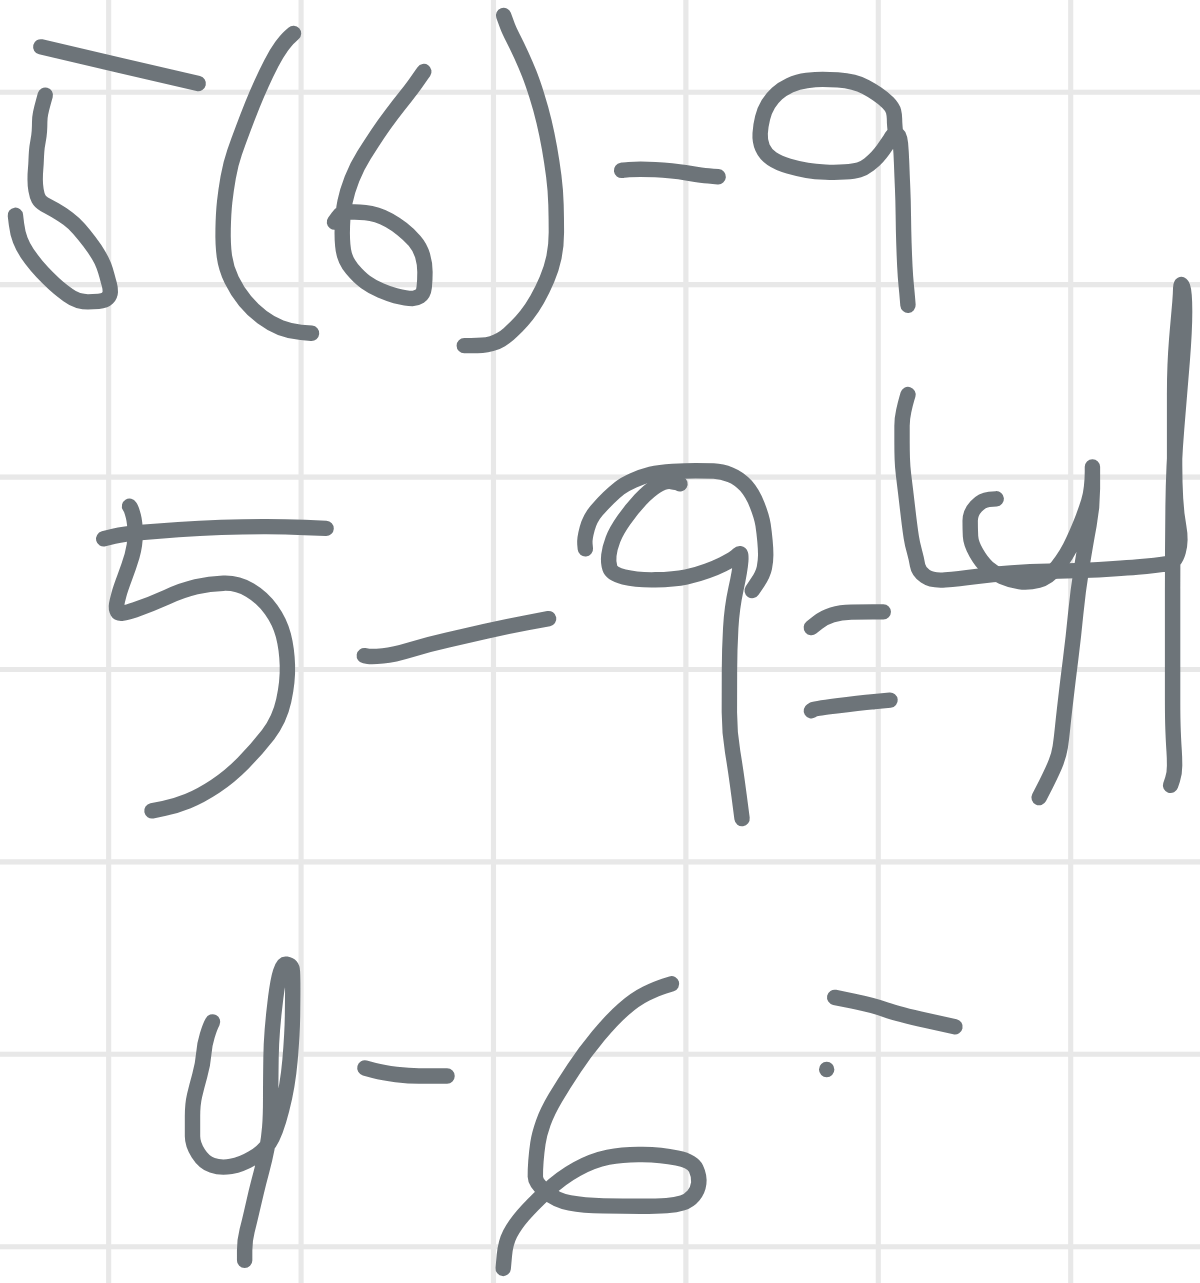 5(6)-9
5-9=44
4-6